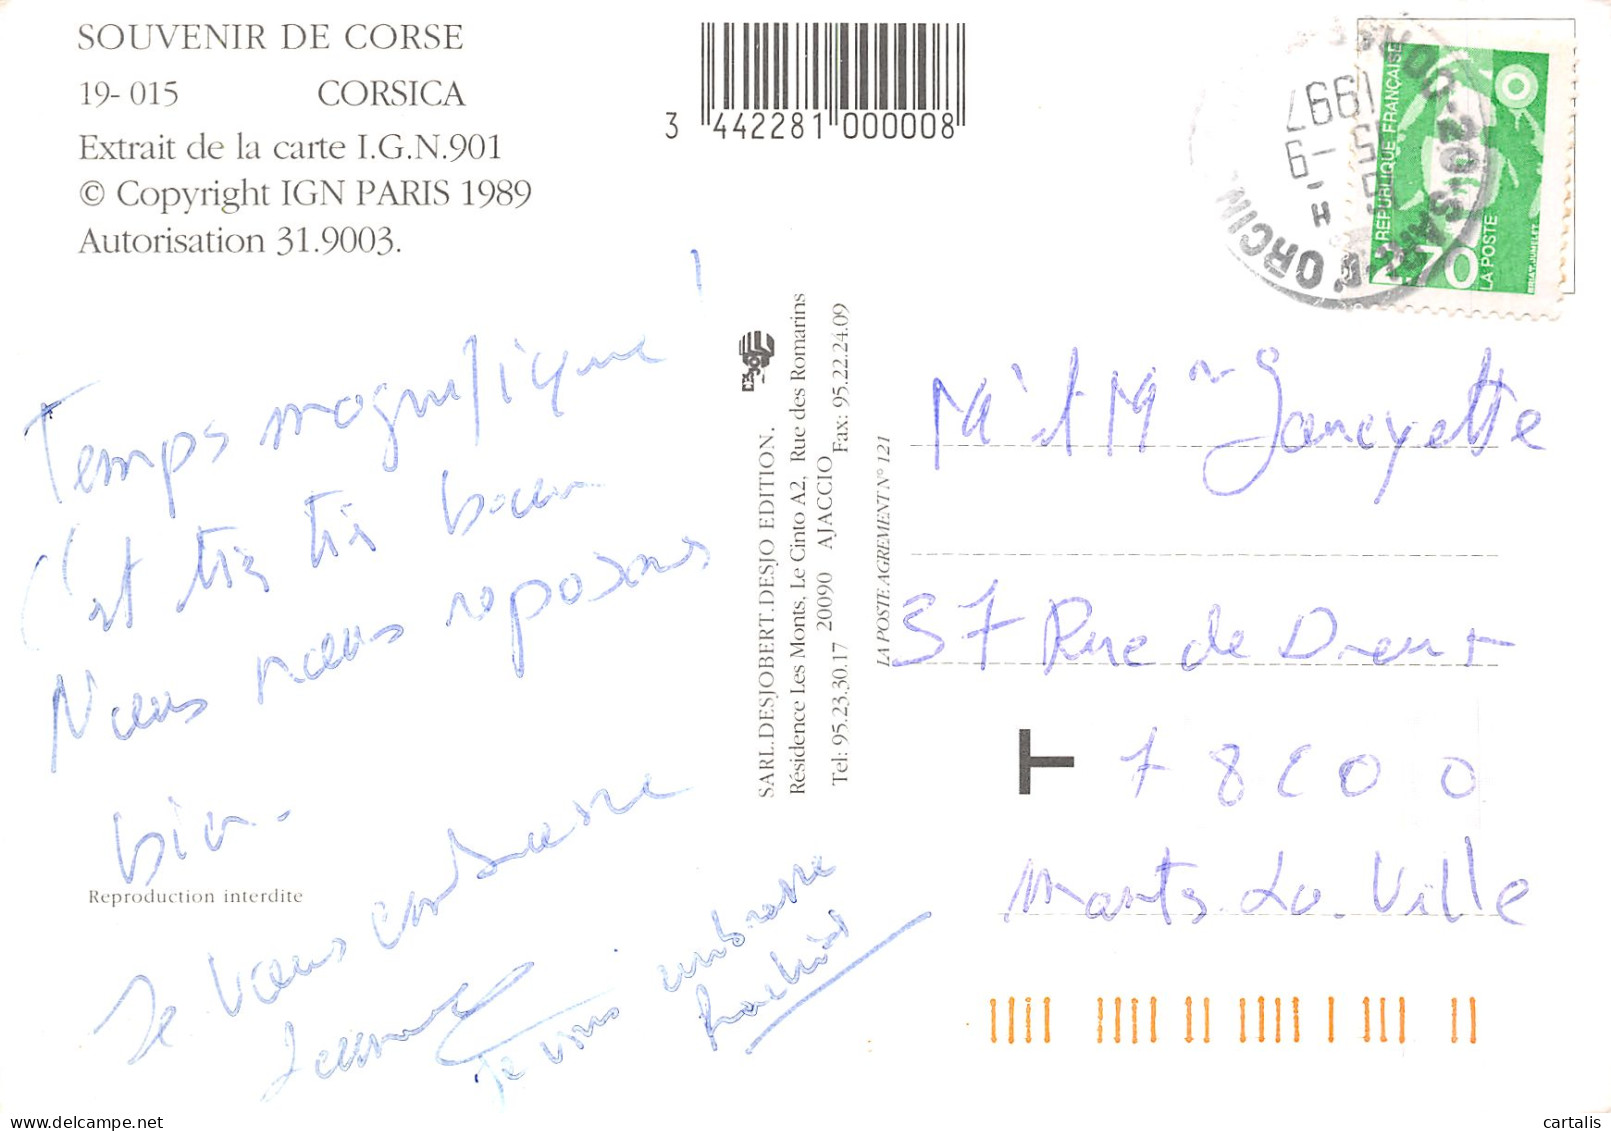 SOUVENIR DE CORSE
19- 015 CORSICA
Extrait de la carte I.G.N.901
© Copyright IGN PARIS 1989
Autorisation 31.9003.
3 442281 000008
Temps magnifique !
C'est très très beau
Nous nous reposons
bien.
Reproduction interdite
Je vous embrasse
Je vous embrasse
SARL.DESJOBERT.DESJO EDITION.
Résidence Les Monts, Le Cinto A2, Rue des Romarins
20090 AJACCIO
Tel: 95.23.30.17 Fax: 95.22.24.09
LA POSTE AGREMENT N° 121
D'ORCINO
15 -9
1997
RÉPUBLIQUE FRANÇAISE
2,70
LA POSTE
BRIAT.JUMELET
M. et Mme
37 Rue de Dreux
T 78200
Mants La Ville
cartalis